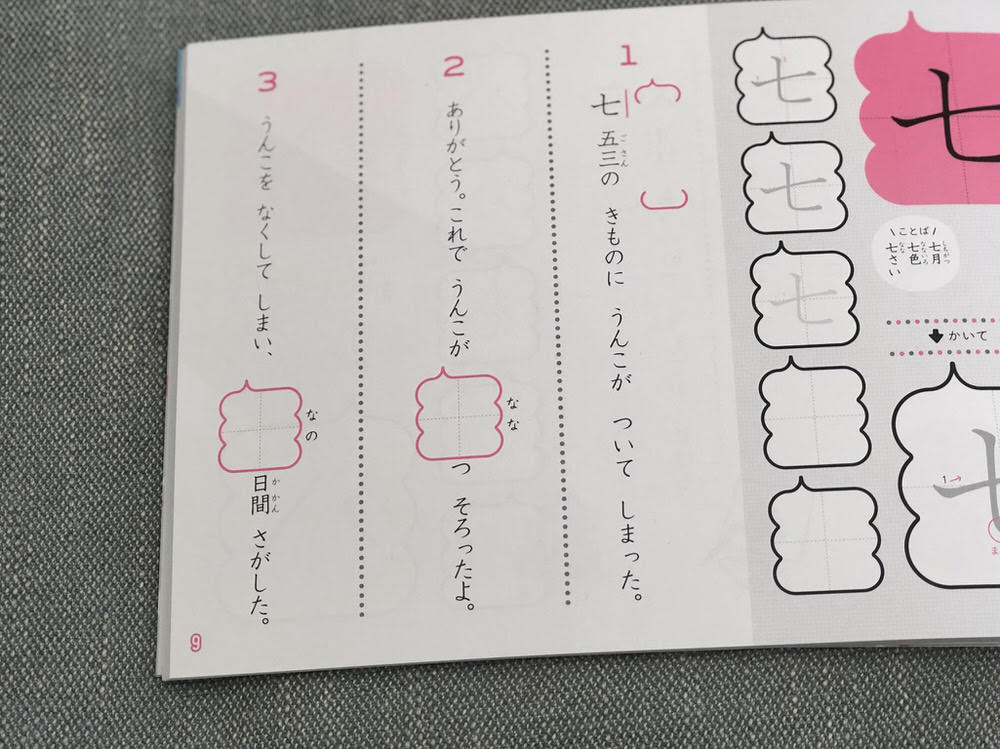 七
ことば
七月
しちがつ
七色
なないろ
七さい
なな
かいて
1→
七
七
七
1
七五三の きものに うんこが ついて しまった。
ごさん
2
ありがとう。これで うんこが つ そろったよ。
なな
3
うんこを なくして しまい、 日間 さがした。
なの
かかん
9